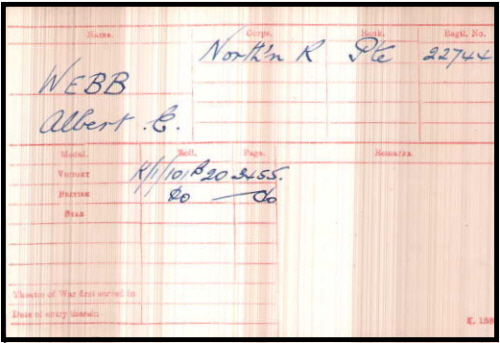 Name. Corps. Rank. Regtl. No.
North'n R Pte 22744
WEBB
Albert E.
Medal. Roll. Page. Remarks.
Victory K/1/101B20 2455.
British do do
Star
Theatre of War first served in
Date of entry therein
K.